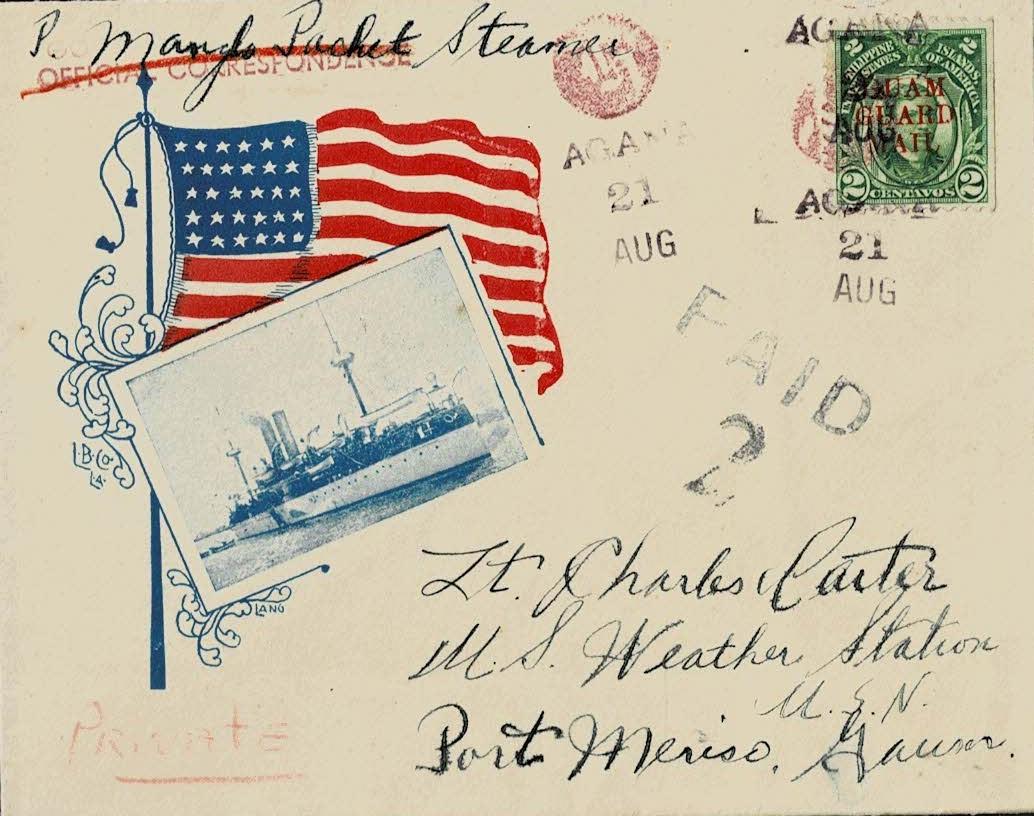 P. Mando Packet Steamer
OFFICIAL CORRESPONDENCE
AGANA
21
AUG
AGANA
AUG
2 2
PHILIPPINE ISLANDS
UNITED STATES OF AMERICA
GUAM
GUARD
MAIL
2 CENTAVOS 2
L AGANA
21
AUG
PAID
2
L.B.Co.
LA.
LANG
Lt. Charles Carter
U.S. Weather Station
U.S.N.
Port Meriso, Gaum.
PRIVATE